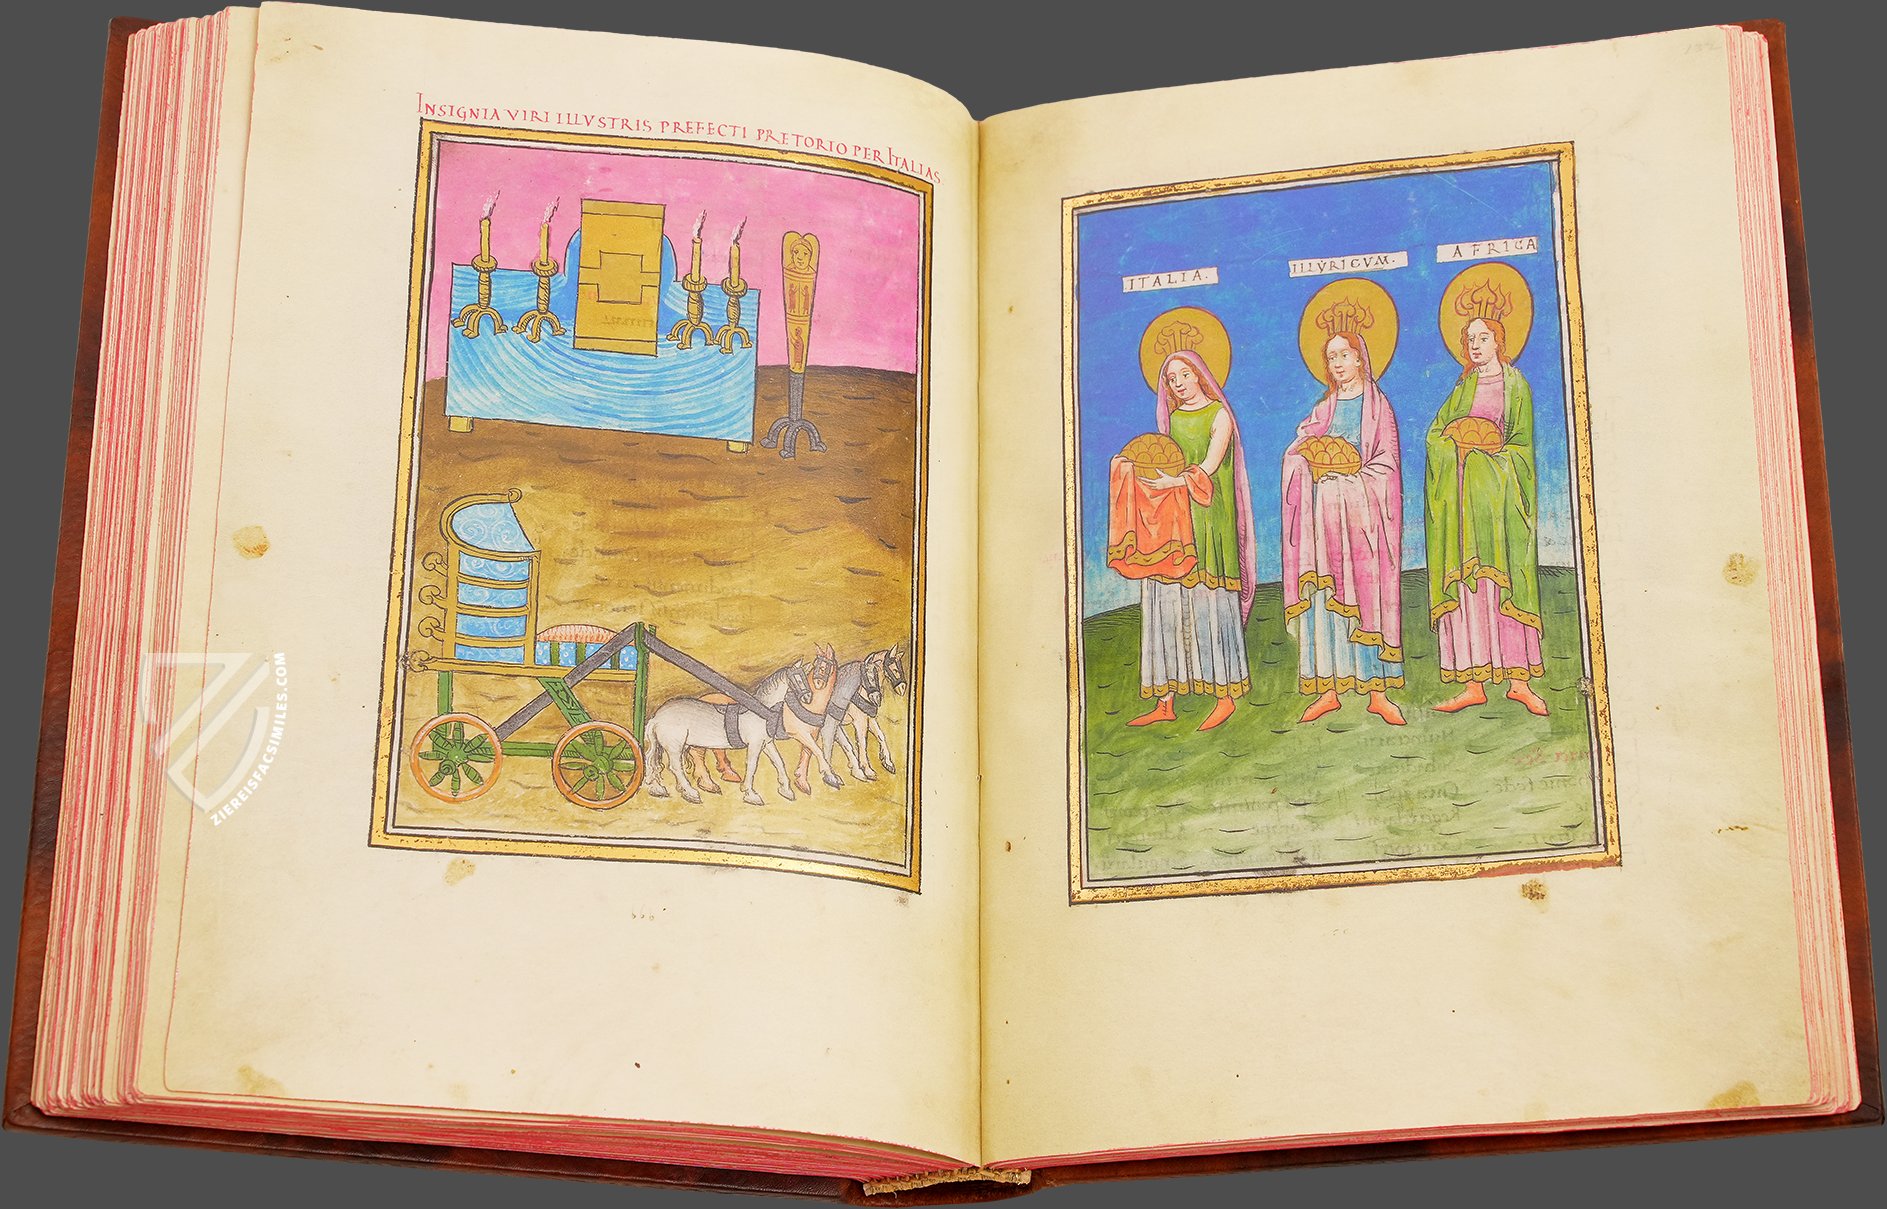 INSIGNIA VIRI ILLVSTRIS PREFECTI PRETORIO PER ITALIAS.
ITALIA.
ILLYRICVM.
AFRICA
132
ZIEREISFACSIMILES.COM